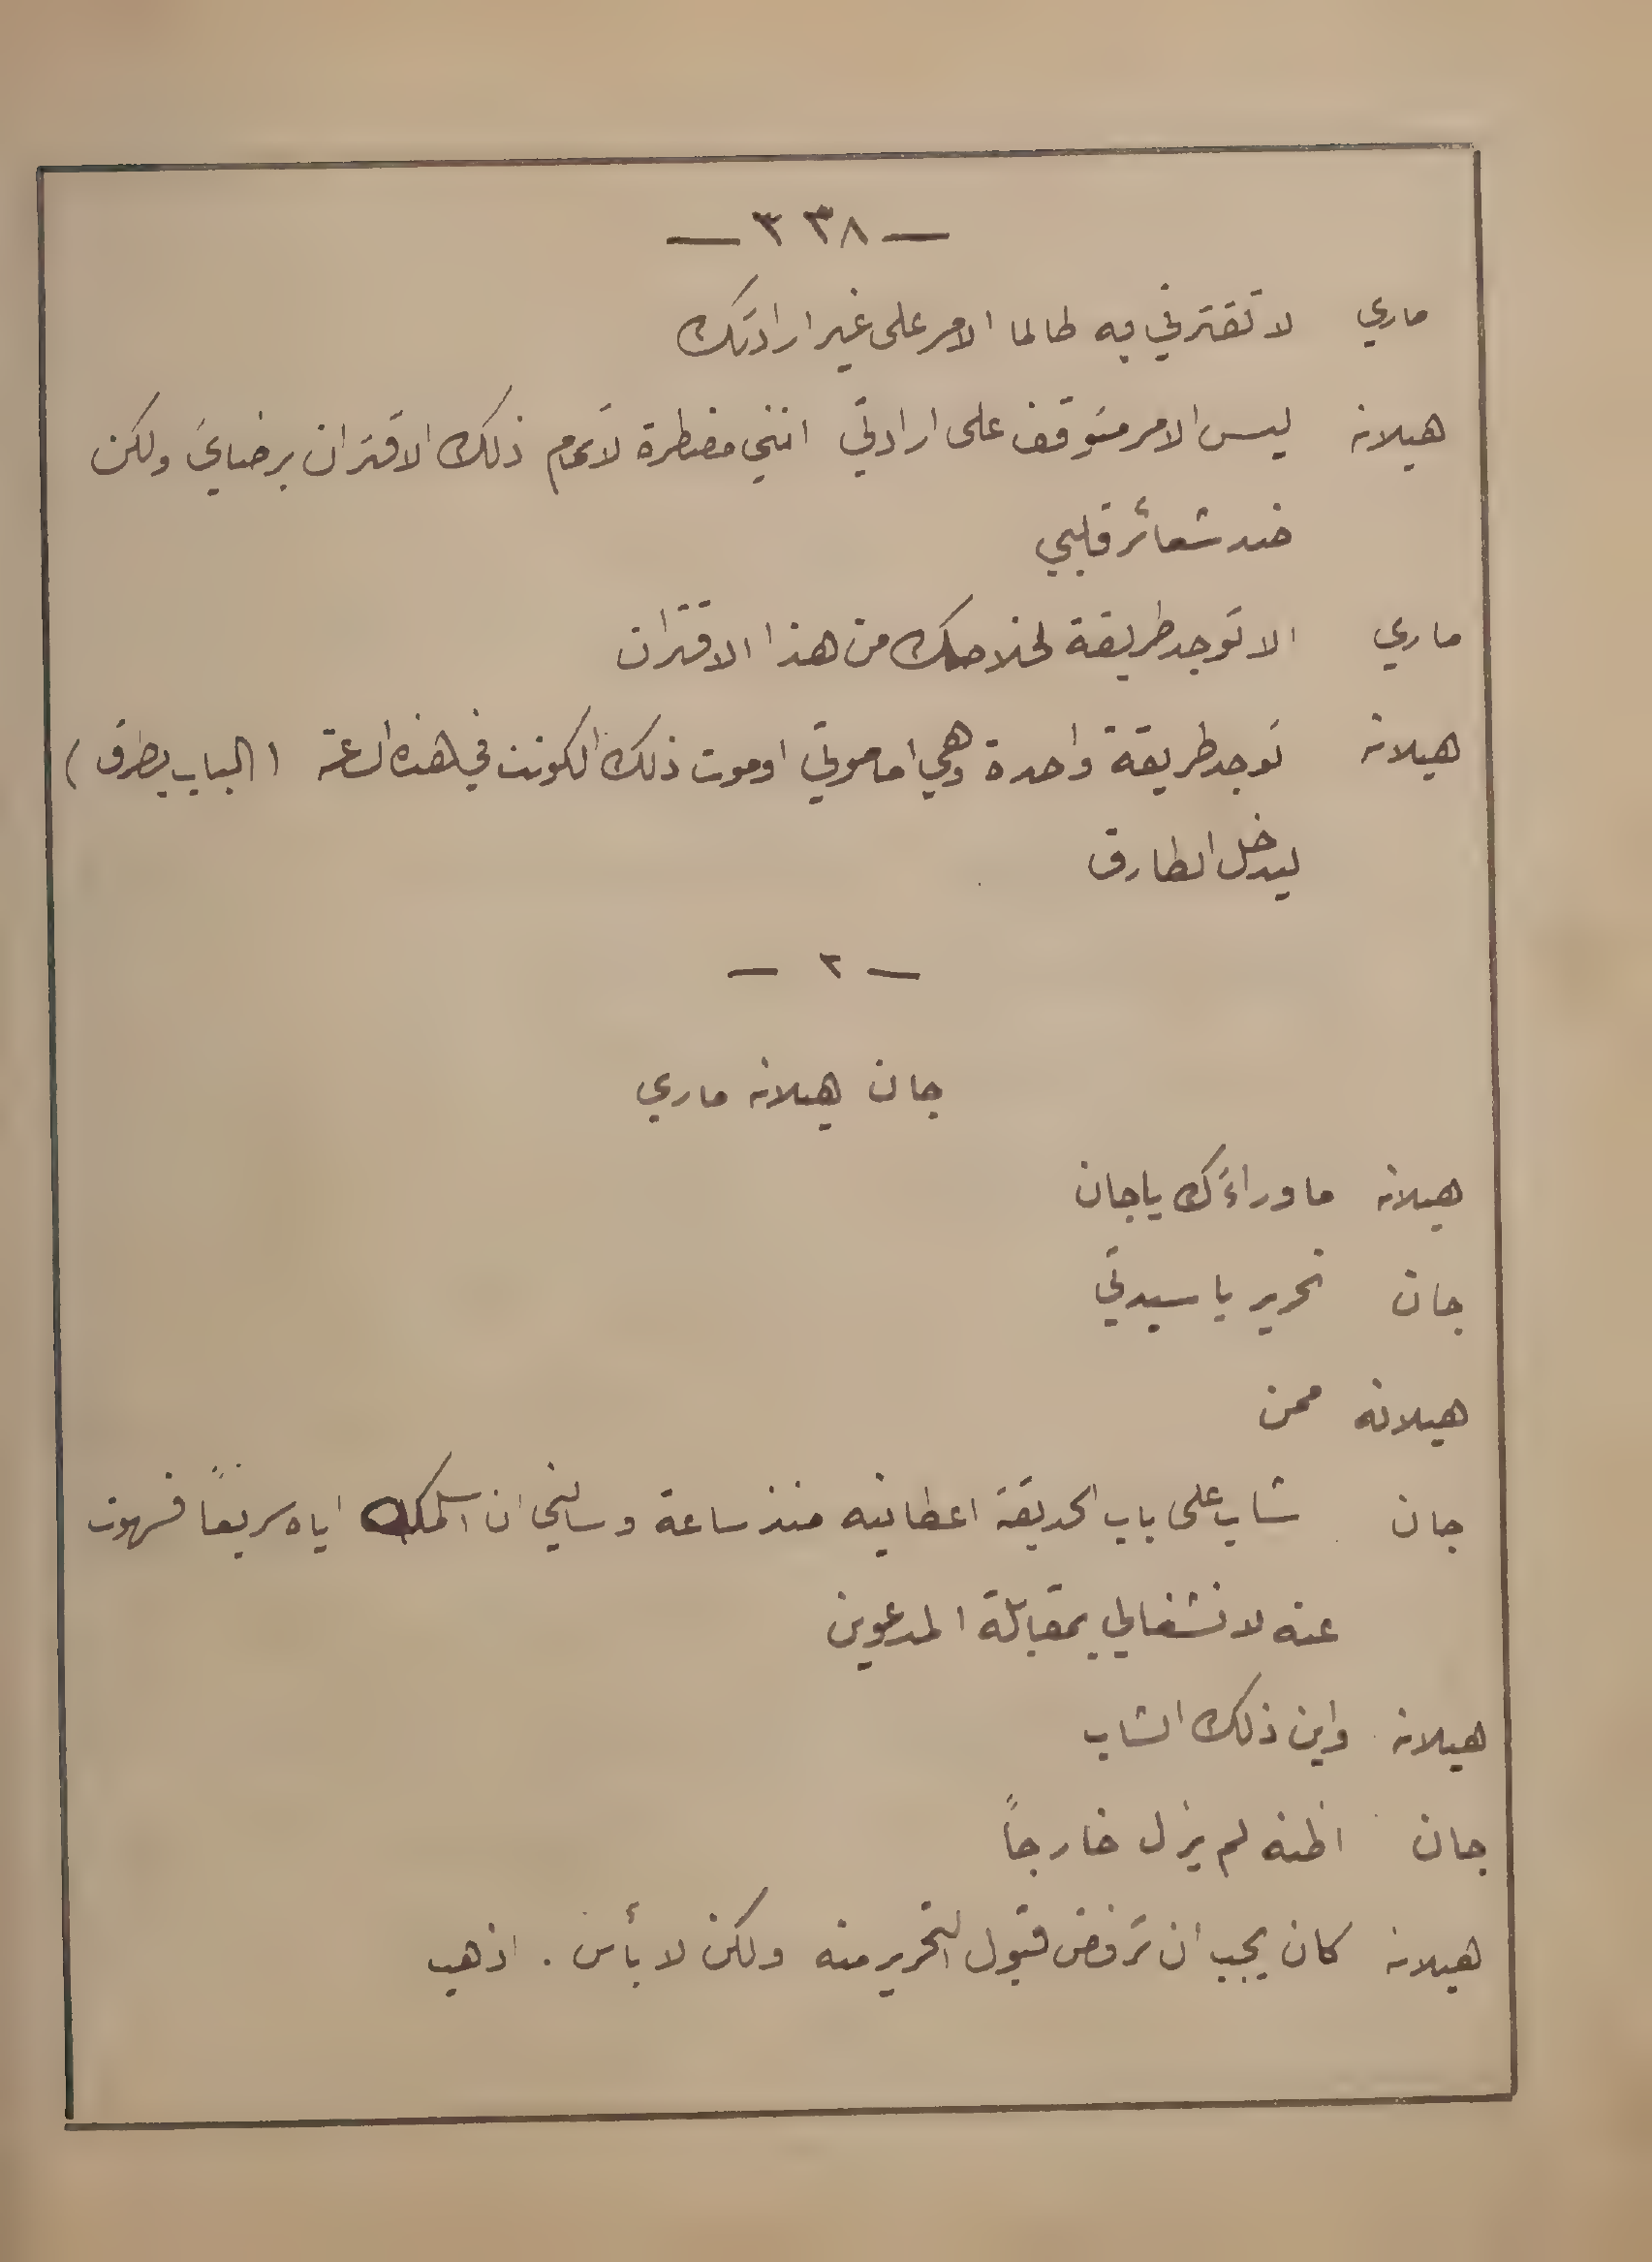 — ٣٣٨ —
ماري لا تقترني به طالما الامر على غير ارادتك
هيلانه ليس الامر متوقف على ارادتي انني مضطرة لاتمام ذلك الاقتران برضايَ ولكن
ضد شعائر قلبي
ماري الا توجد طريقة لخلاصك من هذا الاقتران
هيلانه توجد طريقة واحدة وهي اما موتي او موت ذلك الكونت في هذه الساعة ( الباب يطرق )
ليدخل الطارق
— ٢ —
جان هيلانه ماري
هيلانه ما وراءَك يا جان
جان تحرير يا سيدتي
هيلانه ممن
جان شاب على باب الحديقة اعطانيه منذ ساعة وسالني ان اسلمك اياه سريعاً فسهوت
عنه لانشغالي بمقابلة المدعوين
هيلانه واين ذلك الشاب
جان اظنه لم يزل خارجاً
هيلانه كان يجب ان ترفض قبول التحرير منه ولكن لا بأس . اذهب